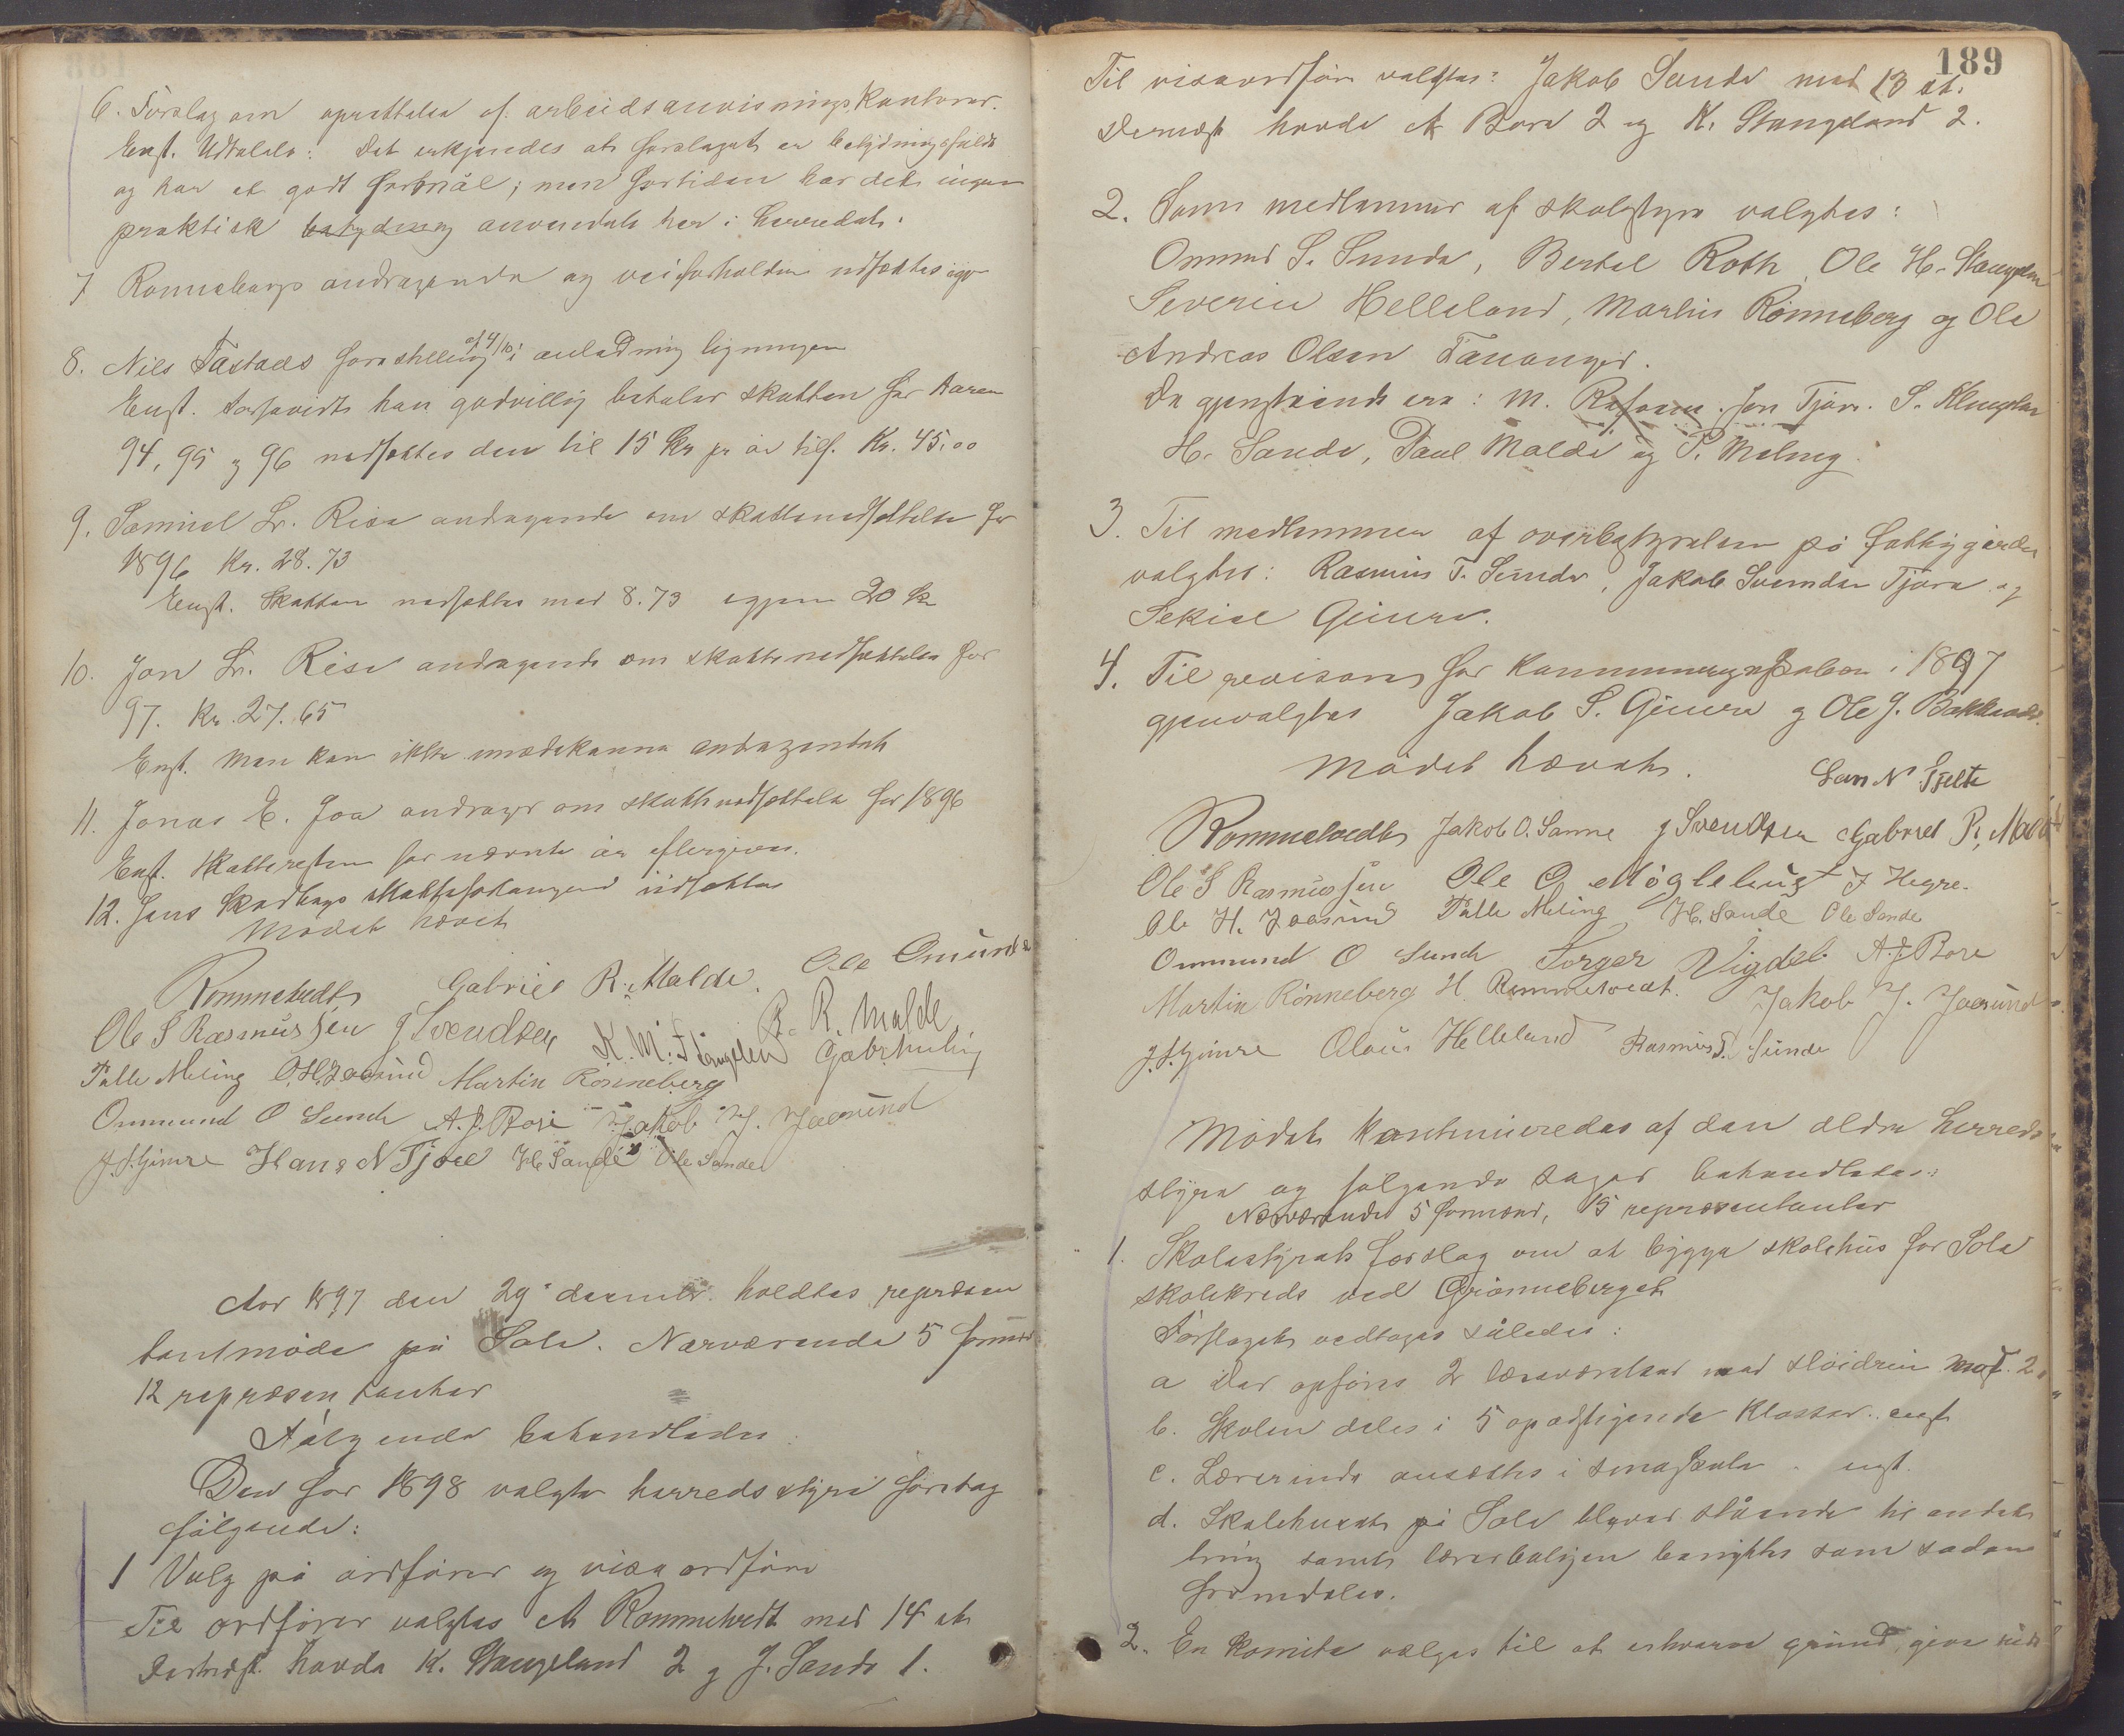 6. Forslag om oprettelse af arbeidsanvisningskontorer.
Enst. Udtalelse: Det erkjendes at forslaget er betydningsfuldt
og har et godt formål; men fortiden har det ingen
praktisk betydning anvendelse her i herredet.
7 Ronnebergs andragende og veiforholden udsættes
8. Nils Tastads forestilling af 4/10 i anledning ligningen
Enst. Forsavidt han godvillig betaler skatten for Aarene
94, 95 og 96 nedsættes den til 15 Kr pr år tils. Kr. 45.00
9. Samuel Lr. Risa andragende om skattenedsættelse for
1896 Kr. 28.73
Enst. Skatten nedsættes med 8.73 igjen 20 Kr
10. Jon Lr. Risa andragende om skattenedsættelse for
97. Kr. 27.65
Enst. Man kan ikke imødekomme andragendet
11. Jonas E. Joa andrager om skattenedsættelse for 1896
Enst. Skatteresten for nævnte år eftergives.
12. Jens udsættes
Mødet hævet
Rommetvedt Gabriel R. Malde. Ole Omunds
Ole S Rasmussen J Svendsen K. M. Stangelen R. R. Malde
Tølle Meling O. H. Joasund Martin Rönneberg
Ommund O Sunde A. J. Bore Jakob J. Joasund
J. S. Gimre Hans N Tjore H. Sande Ole Sande
Aar 1897 den 29 december holdtes repræsen
tantmøde på Sole. Nærværende 5 formænd
12 repræsentanter
Følgende behandledes:
Den for 1898 valgte herredsstyre foretog
følgende:
1 Valg på ordfører og viseordfører
Til ordfører valgtes A Rommetvedt med 14 st.
Dernæst havde K. Stangeland 2 og J. Sande 1.
189
Til viseordfører valgtes: Jakob Sande med 13 st.
Dernæst havde A Bore 2 og K. Stangeland 2.
2. Som medlemmer af skolestyre valgtes:
Ommund S. Sunde, Bertel Roth, Ole H. Stangelan
Severin Helleland, Martin Rönneberg og Ole
Andreas Olsen Tananger.
De gjenstående ere: M. Jon Tjøra. S.
H. Sande, Paul Malde og P. Meling.
3. Til medlemmer af overbestyrelsen på fattiggården
valgtes: Rasmus T. Sunde, Jakob Svendsen Tjøra og
Sekine Gimre.
4. Til revisorer for kommuneregnskaben i 1897
gjenvalgtes Jakob S. Gimre og Ole J. Bakkevold.
Mødet hævet. Søren N Tjelta
Rommetvedt Jakob O. Sømme J Svendsen Gabriel R. Malde
Ole S Rasmussen Ole O Møgletust J Hegre.
Ole H. Joasund Tølle Meling H. Sande Ole Sande
Ommund O Sunde Torger Vigdel A. J. Bore
Martin Rönneberg H Rommetvedt. Jakob J. Joasund
J. S. Gimre Olaus Helleland Rasmus T. Sunde
Mødet kontinueredes af den ældre herreds
styre og følgende sager behandledes:
Nærværende 5 formænd, 15 repræsentanter
1. Skolestyrets forslag om at bygge skolehus for Sole
skolekreds ved Grönneberget
Forslaget vedtages således:
a Der opføres 2 læseværelser med sløidrum mod 2
b. Skolen deles i 5 opadstigende Klasser. enst.
c. Lærerinde ansættes i småskole. enst.
d. Skolehuset på Sole blyver stående til andet
brug samt lærerboligen benyttes som sadan
fremdeles.
2. En komite vælges til at erhverve grund, give